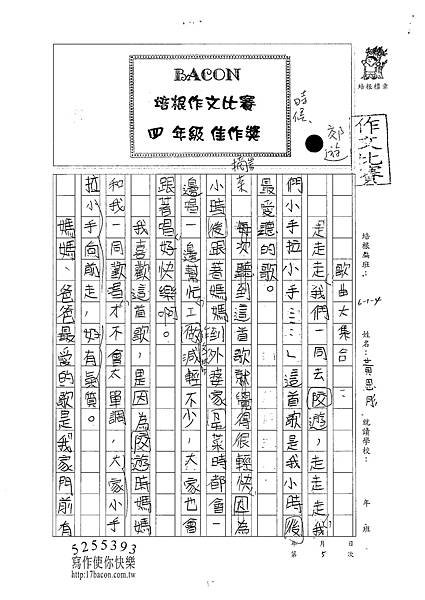 BACON
培根作文比賽
四 年級 佳作獎
培根標章
作文比賽
時候、
郊遊
摘菜
培根編班：
6-1-4
姓名：
就讀學校：
年 班
年 月 日
第 5 次
歌曲大集合
「走走走，我們一同去郊遊，走走走，我
們小手拉小手……」這首歌是我小時後
最愛聽的歌。
每次聽到這首歌就覺得很輕快，因為
小時後跟著媽媽到外婆家採菜時都會一
邊唱一邊幫忙，工做減輕不少，大家也會
跟著唱好快樂啊。
我喜歡這首歌，是因為郊遊時媽媽
和我一同歡唱才不會太單調，大家小手
拉小手向前走，好有氣質。
媽媽、爸爸最愛的歌是「我家門前有
5255393
寫作使你快樂
http://17bacon.com.tw